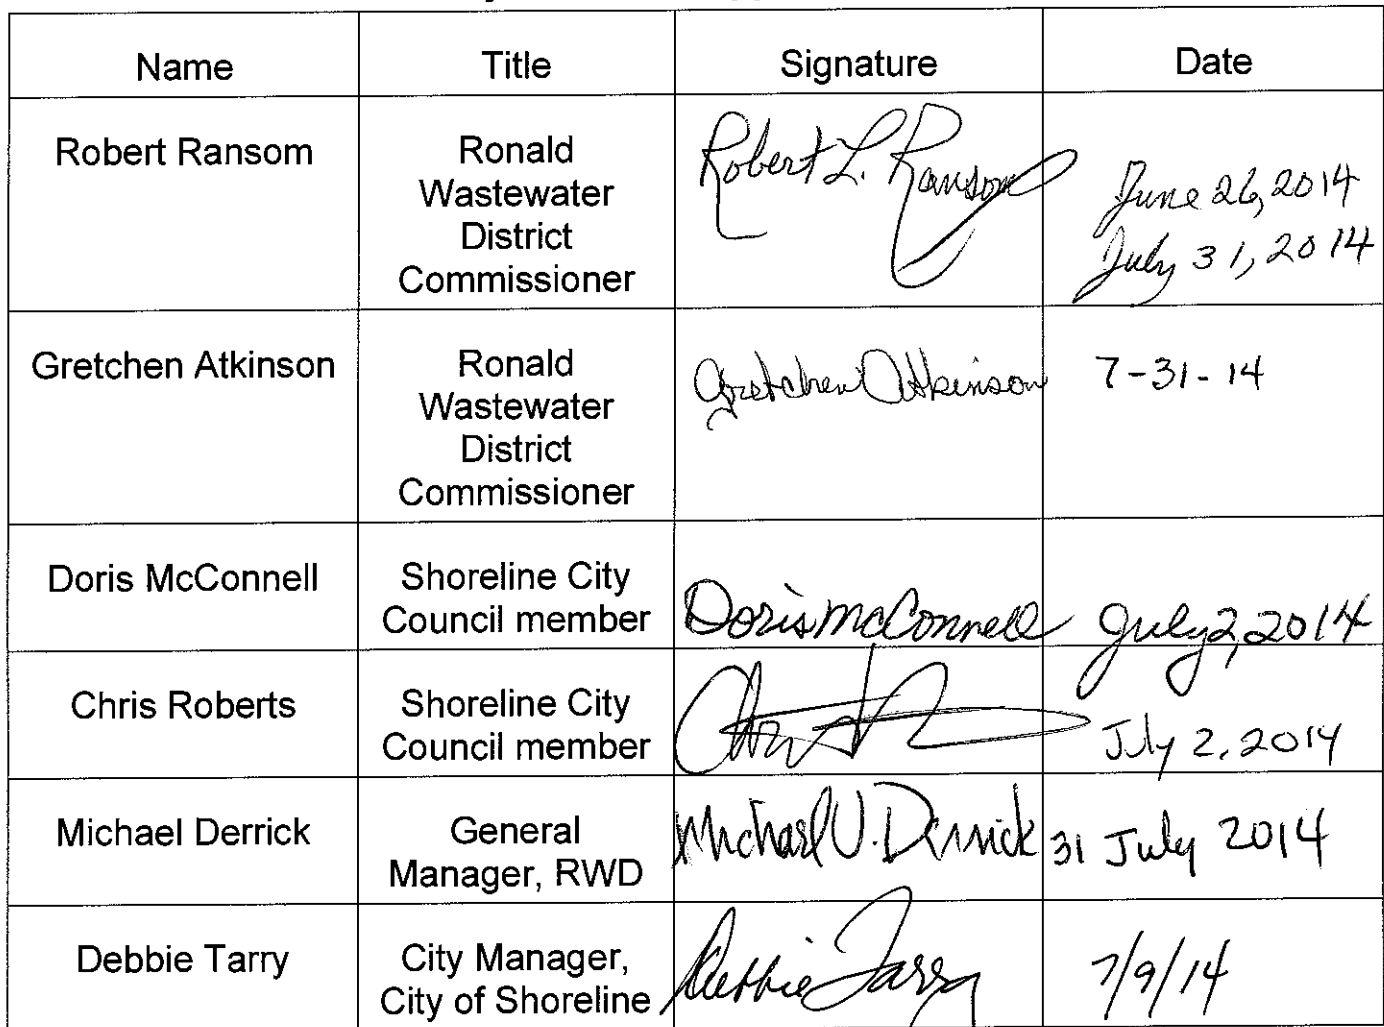 Name Title Signature Date
Robert Ransom Ronald Wastewater District Commissioner Robert L. Ransom June 26, 2014 July 31, 2014
Gretchen Atkinson Ronald Wastewater District Commissioner Gretchen Atkinson 7-31-14
Doris McConnell Shoreline City Council member Doris McConnell July 2, 2014
Chris Roberts Shoreline City Council member July 2, 2014
Michael Derrick General Manager, RWD Michael U. Derrick 31 July 2014
Debbie Tarry City Manager, City of Shoreline Debbie Tarry 7/9/14